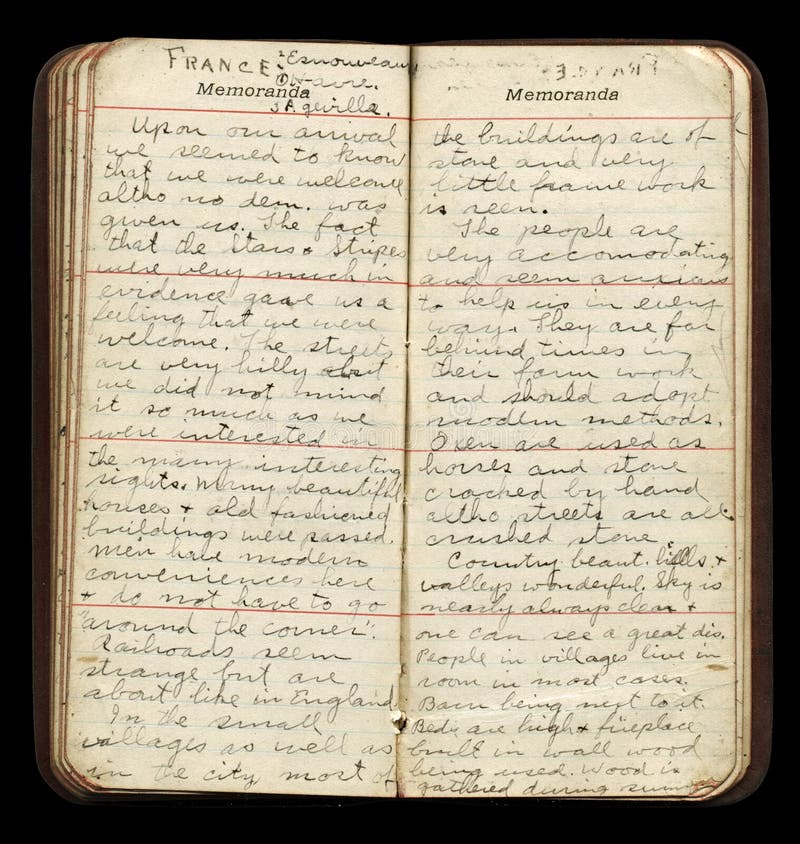 FRANCE: ²Esnouveaux
①Havre.
Memoranda
3 Ageville.
Upon our arrival
we seemed to know
that we were welcome
altho no dem. was
given us. The fact
that the Stars & Stripes
were very much in
evidence gave us a
feeling that we were
welcome. The streets
are very hilly but
we did not mind
it so much as we
were interested in
the many interesting
sights. Many beautiful
houses & old fashioned
buildings were passed.
Men have modern
conveniences here
& do not have to go
"around the corner".
Railroads seem
strange but are
about like in England
In the small
villages as well as
in the city most of
FRANCE
Memoranda
the buildings are of
stone and very
little frame work
is seen.
The people are
very accomodating
and seem anxious
to help us in every
way. They are far
behind times in
their farm work
and should adopt
modern methods.
Oxen are used as
horses and stone
cracked by hand
altho streets are all
crushed stone.
Country beaut. hills &
valleys wonderful. Sky is
nearly always clear &
one can see a great dis.
People in villages live in
room in most cases.
Barn being next to it.
Beds are high & fireplace
built in wall wood
being used. Wood is
gathered during summer